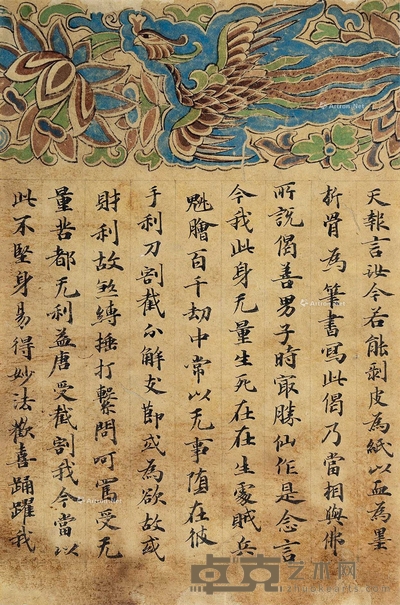 天報言汝今若能剝皮為紙以血為墨
折骨為筆書寫此偈乃當相與佛
所說偈善男子時㝡勝仙作是念言
今我此身无量生死在在生處賊兵
魁膾百千劫中常以无事墮在彼
手利刀割截分解支節或為欲故或
財利故㷀縛捶打繫閉呵罵受无
量苦都无利益唐受截割我今當以
此不堅身易得妙法歡喜踊躍我
卓克艺术网
Artron.Net